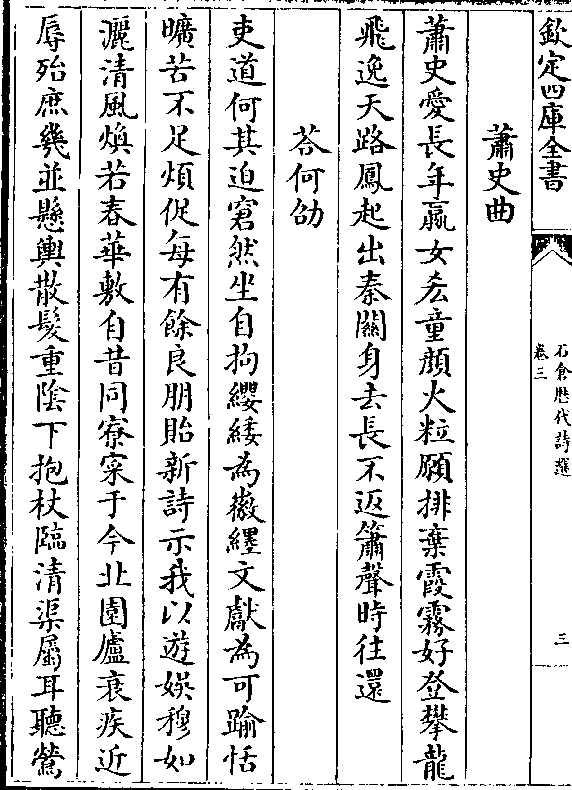 欽定四庫全書
石倉歴代詩選
卷三
三
蕭史曲
蕭史愛長年嬴女㳟童顔火粒願排棄霞霧好登攀龍
飛逸天路鳳起出秦闗身去長不返簫聲時往還
荅何劭
吏道何其迫窘然坐自拘纓緌為徽纆文獻為可踰恬
曠苦不足煩促每有餘良朋貽新詩示我以遊娱穆如
灑清風煥若春華敷自昔同寮寀于今北園廬衰疾近
辱殆庶㡬並懸輿散髪重隂下抱杖臨清渠屬耳聽鶯